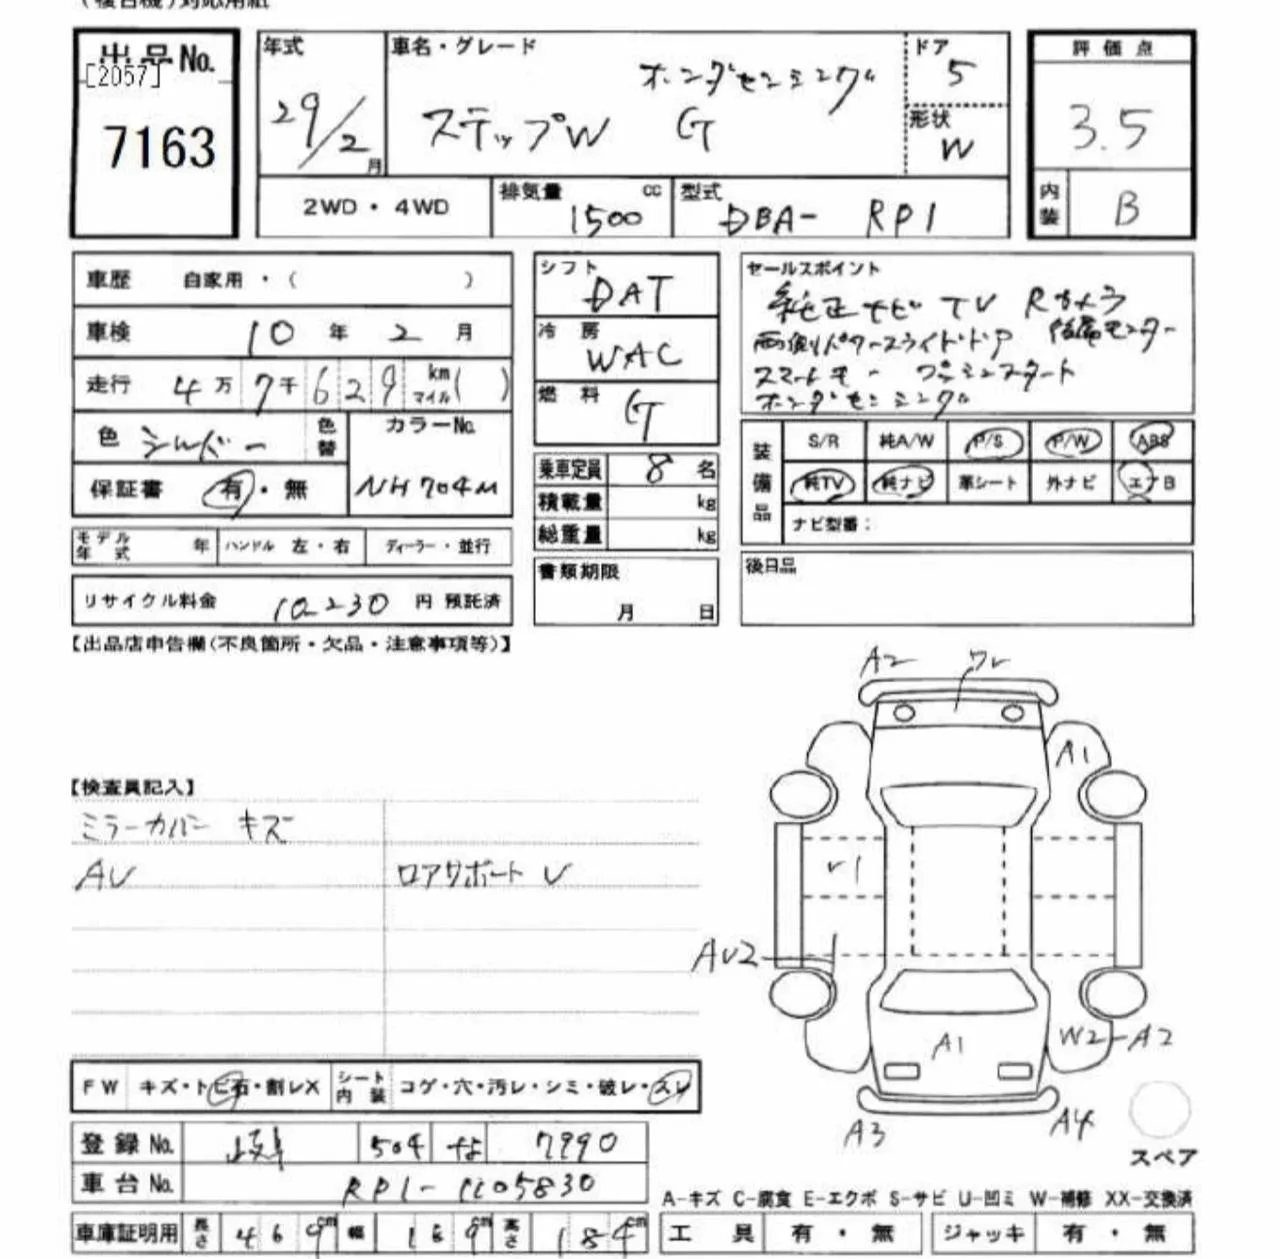 (複合機)対応用紙
出品No.
[2057]
7163
年式
29/2月
車名・グレード
ホンダセンシング
ステップW G
ドア
5
形状
W
評価点
3.5
内装
B
2WD・4WD
排気量 cc
1500
型式
DBA- RP1
車歴 自家用・( )
車検 10年2月
走行 4万7千629km マイル( )
色 シルバー 色替
カラーNo.
NH704M
保証書 有・無
モデル年式 年 ハンドル 左・右 ディーラー・並行
リサイクル料金 10230円 預託済
シフト
DAT
冷房
WAC
燃料
G
乗車定員 8名
積載量 kg
総重量 kg
書類期限
月 日
セールスポイント
純正ナビ TV Rカメラ
両側パワースライドドア 後席モニター
スマートキー プッシュスタート
ホンダセンシング
装備品
S/R 純A/W P/S P/W ABS
純TV 純ナビ 革シート 外ナビ エアB
ナビ型番:
後日品
【出品店申告欄(不良箇所・欠品・注意事項等)】
【検査員記入】
ミラーカバー キズ
AU
ロアサポート U
A2
ワレ
A1
U1
AU2
A1
W2-A2
A3
A4
スペア
FW キズ・トビ石・割レX
シート内装 コゲ・穴・汚レ・シミ・破レ・スレ
登録No. 岐阜 504 な 7990
車台No. RP1-1105830
車庫証明用 長さ 469cm 幅 169cm 高さ 184cm
A-キズ C-腐食 E-エクボ S-サビ U-凹ミ W-補修 XX-交換済
工具 有・無 ジャッキ 有・無